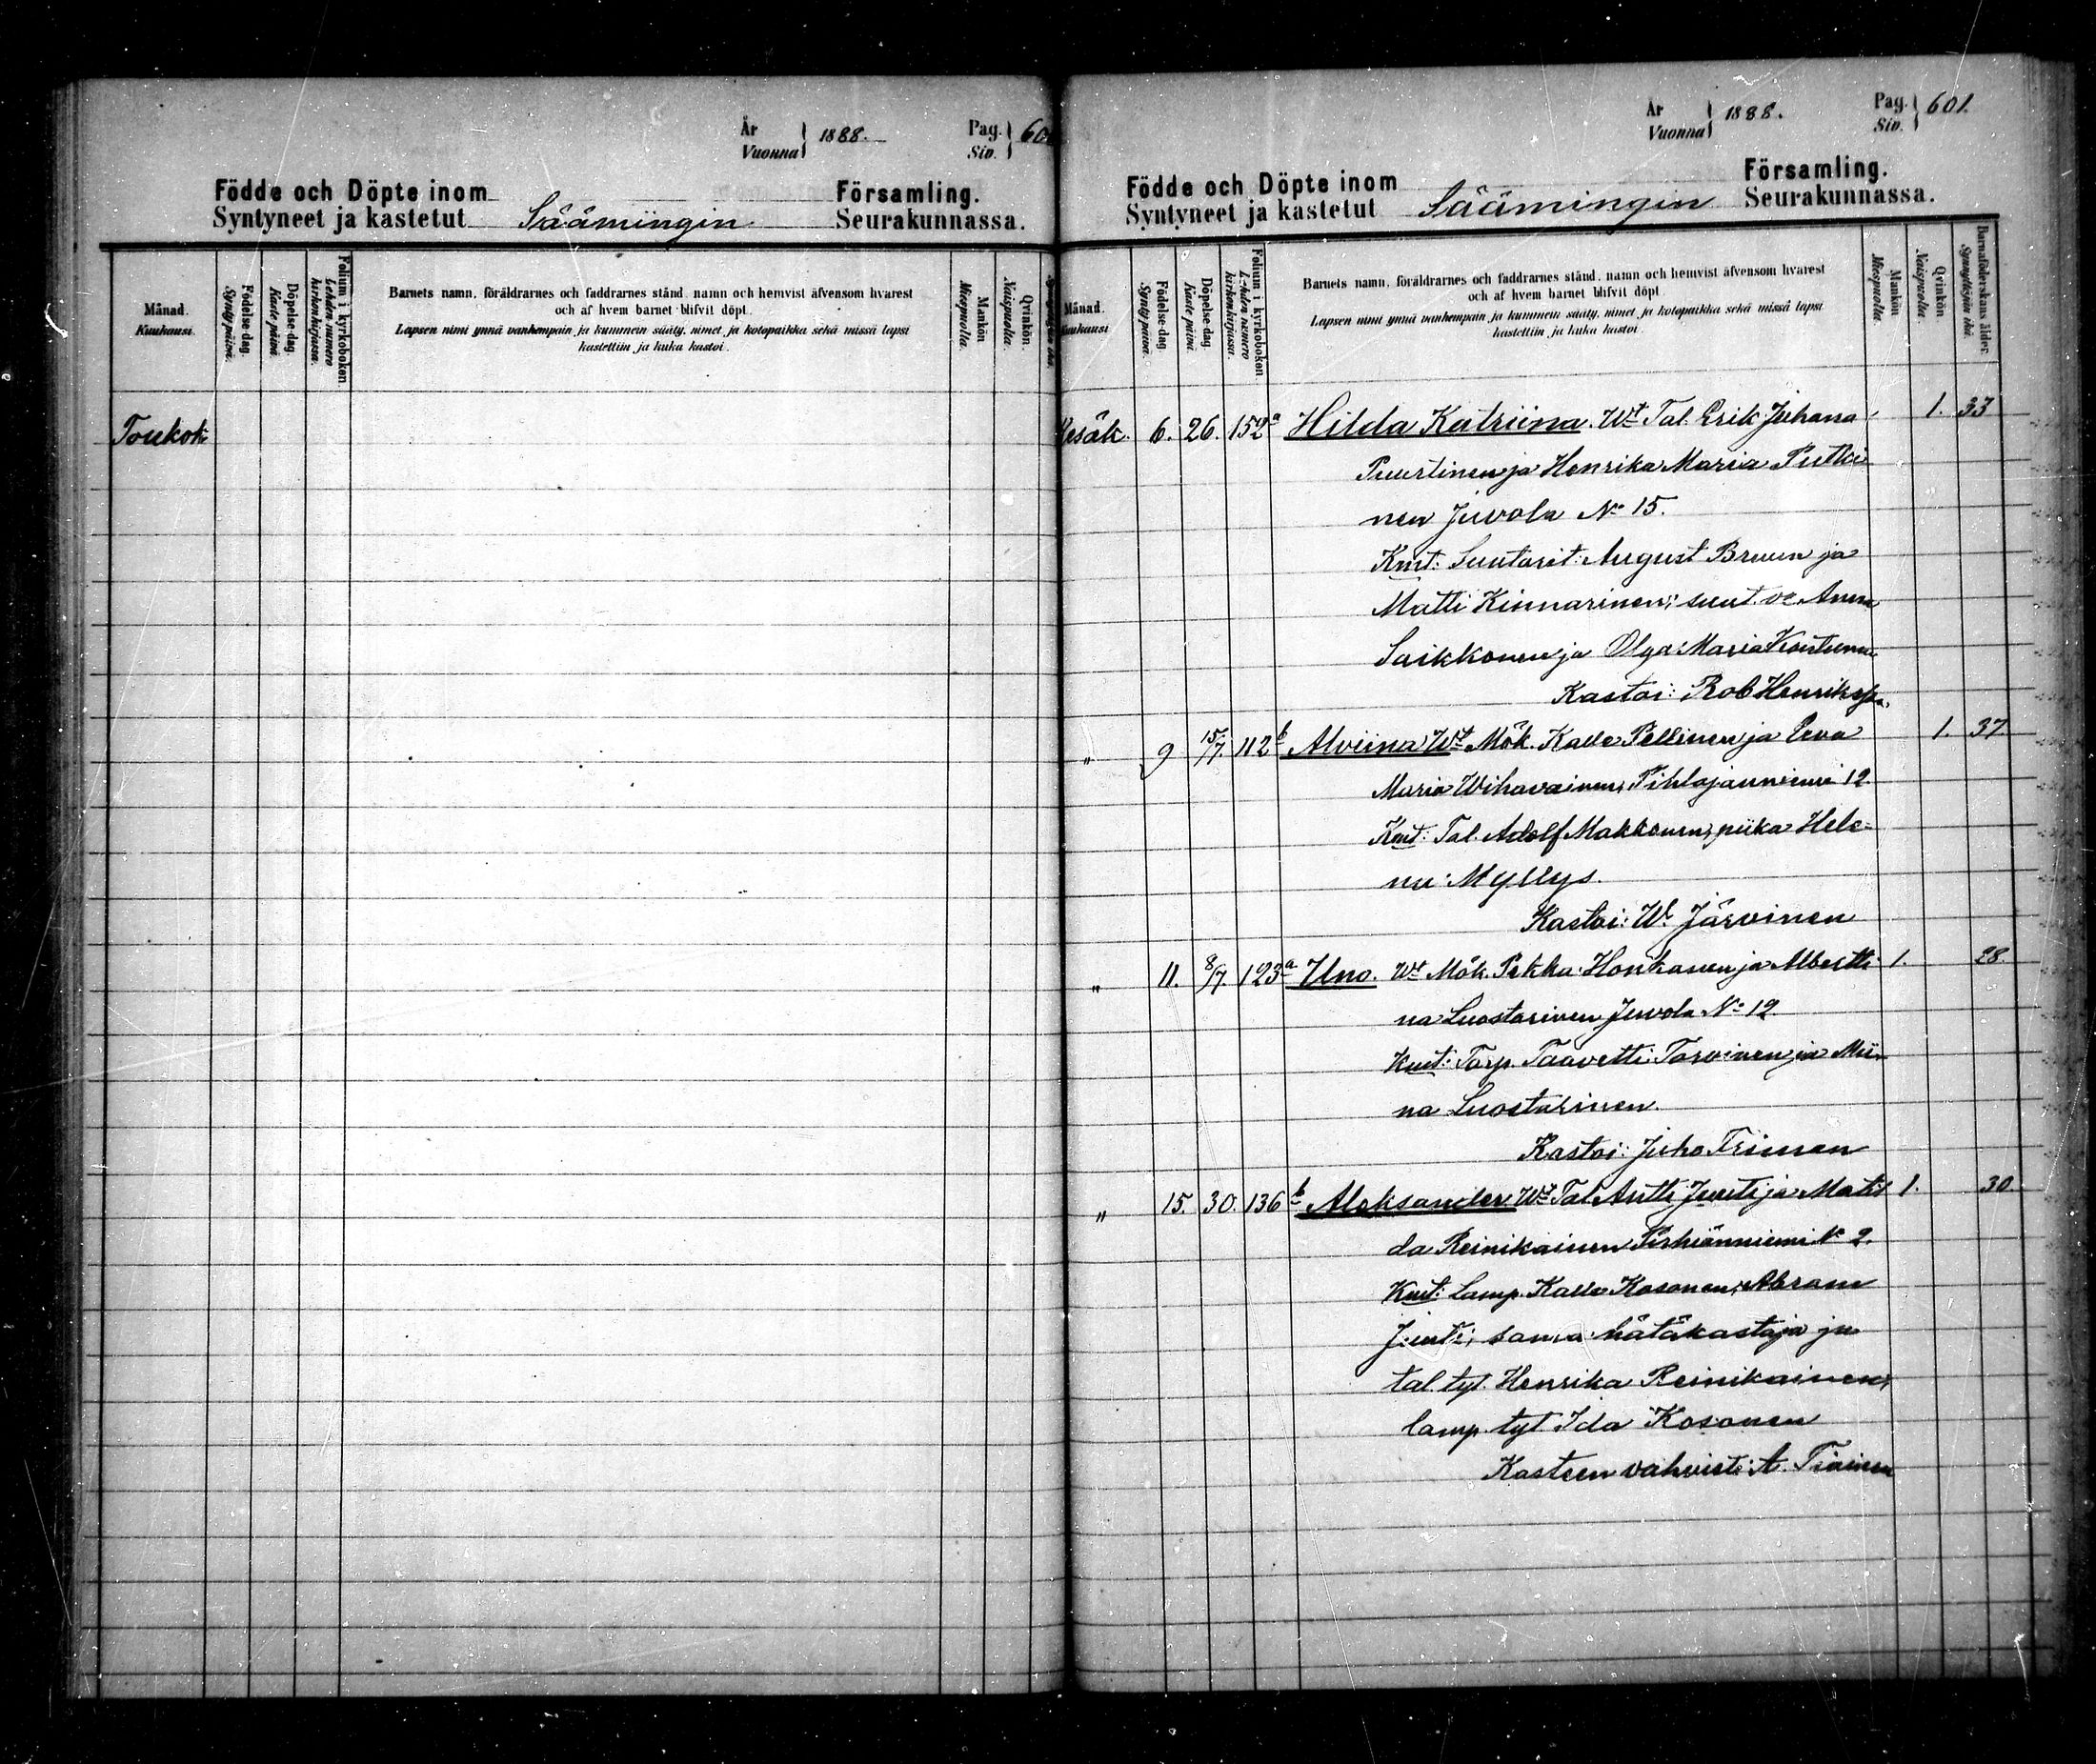 År
Vuonna
1888.
Pag.
Siv.
60
Födde och Döpte inom
Församling.
Syntyneet ja kastetut
Sääminġin
Seurakunnassa.
Månad.
Kuukausi.
Födelse-dag.
Syntypäivä.
Döpelse-dag.
Kastepäivä.
Folium i kyrkoboken.
Lehden numero kirkonkirjassa.
Barnets namn, föräldrarnes och faddrarnes stånd, namn och hemvist äfvensom hvarest
och af hvem barnet blifvit döpt.
Lapsen nimi ynnä vanhempain ja kummein sääty, nimet ja kotopaikka sekä missä lapsi
kastettiin ja kuka kastoi.
Mankön
Miespuolia.
Qvinkön.
Naispuolia.
Toukok
År
Vuonna
1888.
Pag.
Siv.
601.
Födde och Döpte inom
Församling.
Syntyneet ja kastetut
Säämingin
Seurakunnassa.
Månad.
Kuukausi
Födelse-dag
Syntypäivä.
Döpelse-dag.
Kastepäivä
Folium i kyrkoboken.
Lehden numero kirkonkirjassa.
Barnets namn, föräldrarnes och faddrarnes stånd, namn och hemvist äfvensom hvarest
och af hvem barnet blifvit döpt
Lapsen nimi ynnä vanhempain ja kummein sääty, nimet ja kotopaikka sekä missä lapsi
kastettiin ja kuka kastoi.
Mankön
Miespuolia.
Qvinkön
Naispuolia.
Barnaföderskans ålder.
Synnyttäjän ikä.
Kesäk. 6. 26. 152a Hilda Katriina. Wt Tal. Erik Juhana 1. 33
Puustinen ja Henrika Maria Putki-
nen Juvola No 15.
Kmt: Suutarit: August Bruun ja
Matti Kinnarinen; suut. vo Anna
Saikkonen ja Olga Maria
Kastoi: Rob Henriksson.
" 9 15/7. 112b Alviina Wt Mök. Kalle Pellinen ja Eeva 1. 37
Maria Wihavainen, Pihlajanniemi 12
Kmt: Tal. Adolf Makkonen, piika Hele-
na Myllys.
Kastoi: W. Järvinen
" 11. 8/7. 123a Uno. Wt Mök. Pekka Honkanen ja Albertti- 1. 28.
na Luostarinen Juvola No 12
Kmt: Torp. Taavetti Tarvinen ja Mii-
na Luostarinen.
Kastoi: Juho Friman
" 15. 30. 136b Aleksander. Wt Tal Antti Juuti ja Matil 1. 30
da Reinikainen No 2.
Kmt: Lamp. Kalle Kosonen, Abram
Juuti, sama hätäkastaja ja
tal. tyt. Henrika Reinikainen,
lamp. tyt Ida Kosonen
Kasteen vahvisti: A. Tiainen